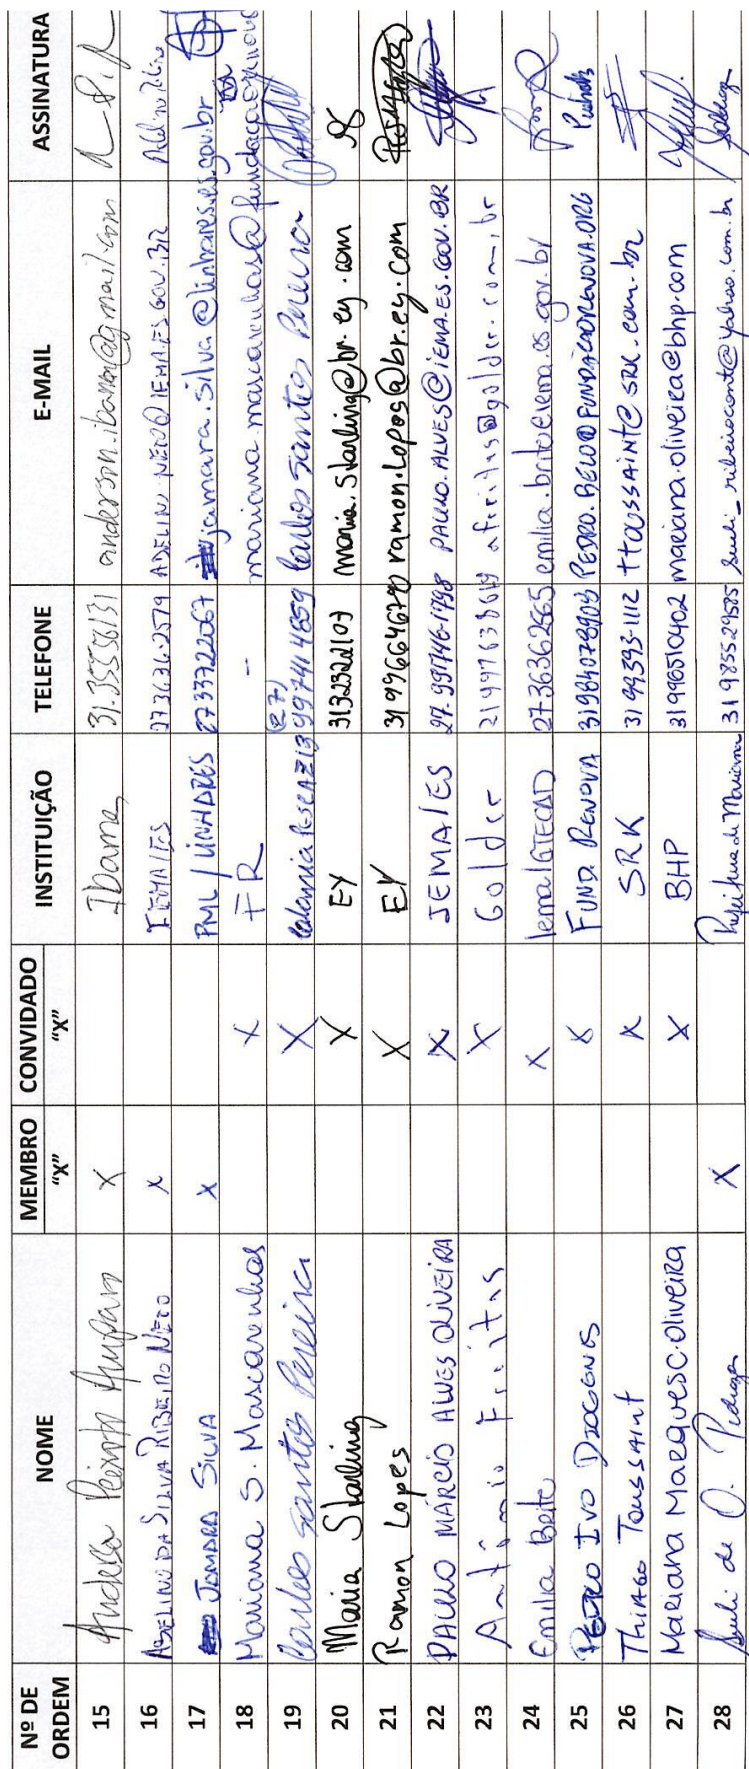 Nº DE ORDEM NOME MEMBRO "X" CONVIDADO "X" INSTITUIÇÃO TELEFONE E-MAIL ASSINATURA
15 Peixoto X Ibama 31.35556131
16 ADELINO DA SILVA RIBEIRO NETO X IEMA/ES 27 3636-2579 ADELINO.NETO@IEMA.ES.GOV.BR
17 JAMARA SILVA X PML/LINHARES 2733722067 jamara.silva@linhares.es.gov.br
18 Mariana S. Mascarenhas X FR -- mariana.mascarenhas@fundacaorenova
19 Carlos Santos Pereira X Colonia Pesca Z13 (27) 997414859 Carlos Santos Pereira
20 Maria Starling X EY 3132322109 maria.starling@br.ey.com
21 Ramon Lopes X EY 31996646720 ramon.lopes@br.ey.com
22 PAULO MÁRCIO ALVES OLIVEIRA X IEMA/ES 27.99746-1798 PAULO.ALVES@IEMA.ES.GOV.BR
23 Antônio Freitas X Golder 21997638619 afreitas@golder.com.br
24 Emilia Brito X Iema/GTECAD 2736362565 emilia.brito@iema.es.gov.br
25 PEDRO IVO DIOGENES X FUND. RENOVA 31984078903 PEDRO.BELO@FUNDACAORENOVA.ORG
26 THIAGO TOUSSAINT X SRK 31 99393-1112 TTOUSSAINT@SRK.com.br
27 Mariana Marques C. Oliveira X BHP 31996510402 mariana.oliveira@bhp.com
28 Sueli de O. X Prefeitura de Mariana 31 985529585 sueli_ribeirocont@yahoo.com.br